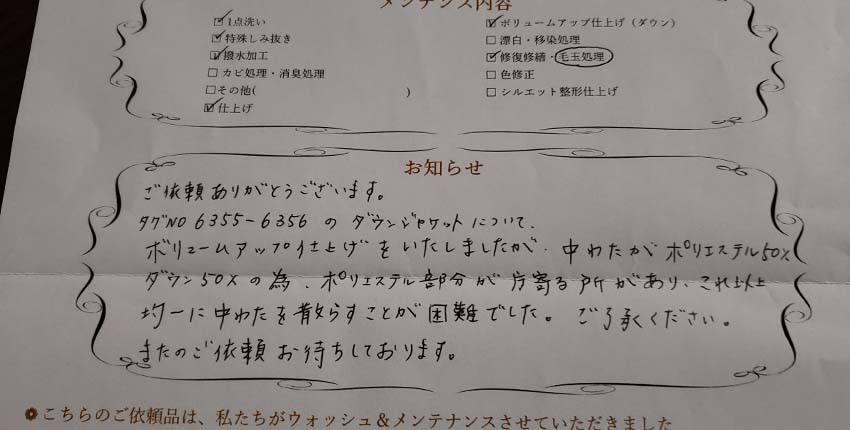 メンテナンス内容
☑1点洗い
☑特殊しみ抜き
☑撥水加工
□カビ処理・消臭処理
□その他( )
☑仕上げ
☑ボリュームアップ仕上げ（ダウン）
□漂白・移染処理
☑修復修繕・毛玉処理
□色修正
□シルエット整形仕上げ
お知らせ
ご依頼ありがとうございます。
タグNO 6355-6356 の ダウンジャケットについて、
ボリュームアップ仕上げをいたしましたが、中わたがポリエステル50%
ダウン50%の為、ポリエステル部分が片寄る所があり、これ以上
均一に中わたを散らすことが困難でした。ご了承ください。
またのご依頼お待ちしております。
こちらのご依頼品は、私たちがウォッシュ＆メンテナンスさせていただきました